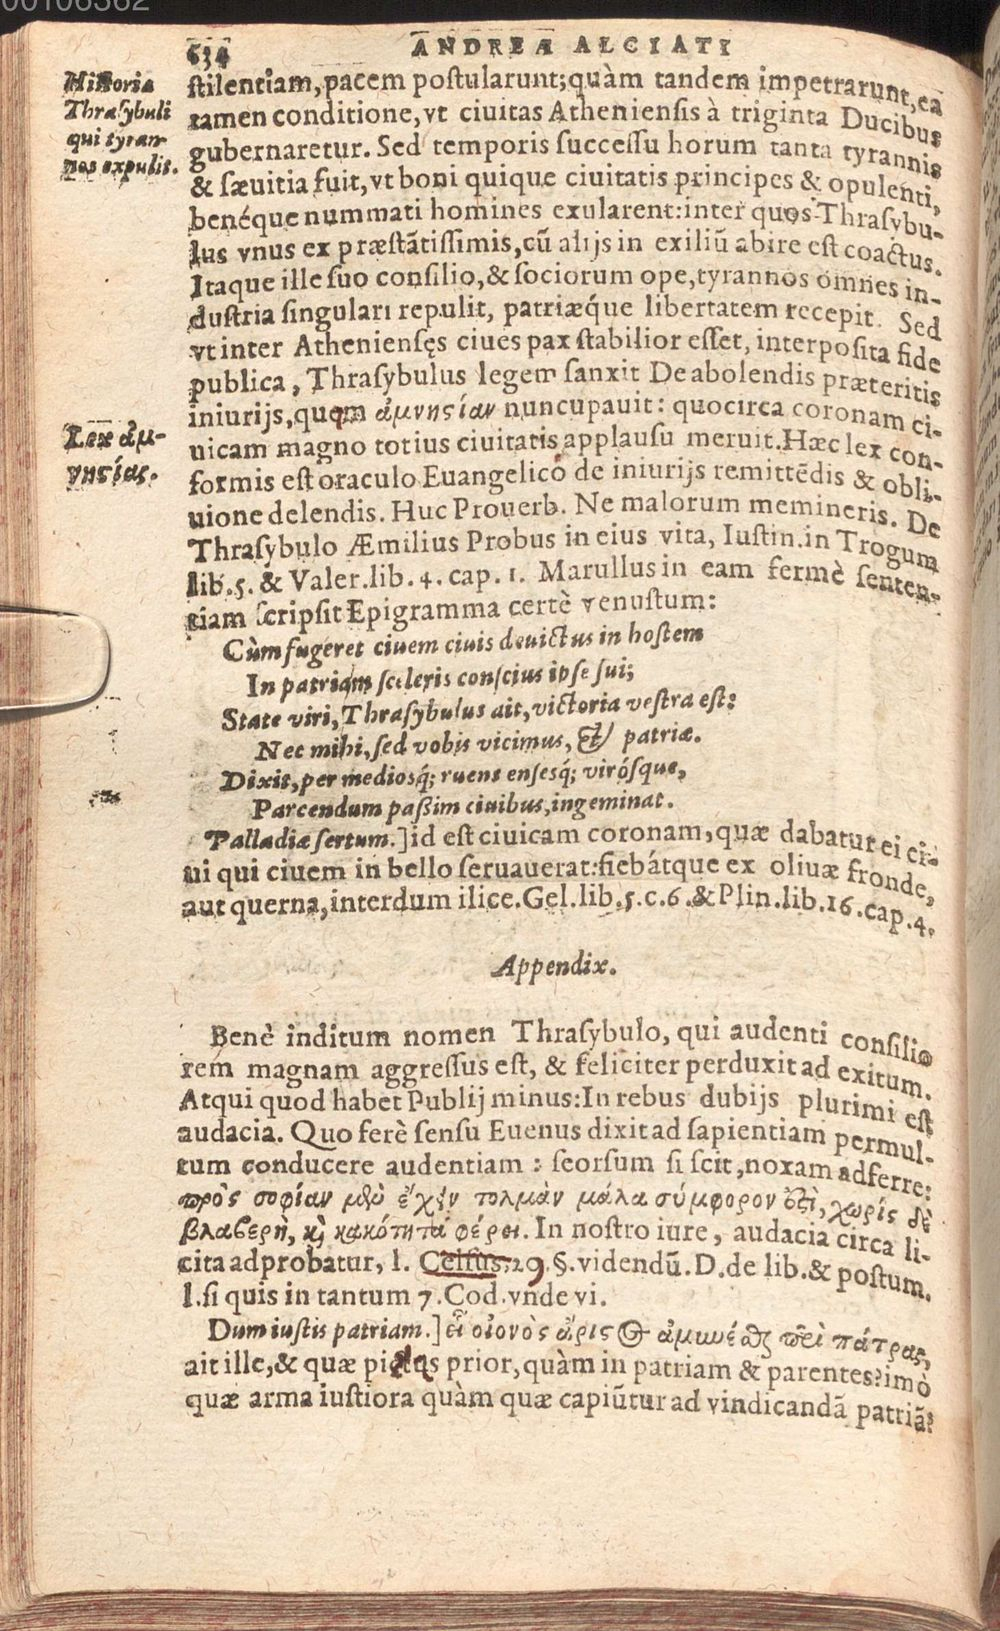 00106362
634
ANDREÆ ALCIATI
Historia
Thrasybuli
qui tyran-
nos expulit.
stilentiam, pacem postularunt; quàm tandem impetrarunt, ea
tamen conditione, vt ciuitas Atheniensis à triginta Ducibus
gubernaretur. Sed temporis successu horum tanta tyrannis
& sæuitia fuit, vt boni quique ciuitatis principes & opulenti,
benéque nummati homines exularent: inter quos Thrasybu-
lus vnus ex præstãtissimis, cũ alijs in exiliũ abire est coactus.
Itaque ille suo consilio, & sociorum ope, tyrannos omnes in-
dustria singulari repulit, patriæque libertatem recepit. Sed
vt inter Athenienses ciues pax stabilior esset, interposita fide
publica, Thrasybulus legem sanxit De abolendis præteritis
iniurijs, quem ἀμνηςίαν nuncupauit: quocirca coronam ci-
Lex ἀμ-
νηςίας.
uicam magno totius ciuitatis applausu meruit. Hæc lex con-
formis est oraculo Euangelico de iniurijs remittẽdis & obli-
uione delendis. Huc Prouerb. Ne malorum memineris. De
Thrasybulo Æmilius Probus in eius vita, Iustin. in Trogum
lib. 5. & Valer. lib. 4. cap. 1. Marullus in eam fermè senten-
tiam scripsit Epigramma certè venustum:
Cùm fugeret ciuem ciuis deuictus in hostem
In patriam sceleris conscius ipse sui;
State viri, Thrasybulus ait, victoria vestra est:
Nec mihi, sed vobis vicimus, & patriæ.
Dixit, per mediosq́; ruens ensesq́; virósque,
Parcendum paßim ciuibus, ingeminat.
Palladiæ sertum.] id est ciuicam coronam, quæ dabatur ei ci-
ui qui ciuem in bello seruauerat: fiebátque ex oliuæ fronde,
aut querna, interdum ilice. Gel. lib. 5. c. 6. & Plin. lib. 16. cap. 4.
Appendix.
Benè inditum nomen Thrasybulo, qui audenti consilio
rem magnam aggressus est, & feliciter perduxit ad exitum.
Atqui quod habet Publij minus: In rebus dubijs plurimi est
audacia. Quo ferè sensu Euenus dixit ad sapientiam permul-
tum conducere audentiam : seorsum si scit, noxam adferre:
πρὸς σοφίαν μὲν ἔχειν τολμὰν μάλα σύμφορον ἐςὶ, χωρίς δὲ
βλαβερὴ, κὶ κακότητα φέρει. In nostro iure, audacia circa li-
cita adprobatur, l. Celsus. 29. §. videndũ. D. de lib. & postum.
l. si quis in tantum 7. Cod. vnde vi.
Dum iustis patriam.] εἷς οἰονὸς ἄριςος ἀμύνεσθαι περὶ πάτρας,
ait ille, & quæ pietas prior, quàm in patriam & parentes? imò
quæ arma iustiora quàm quæ capiũtur ad vindicandã patriã?